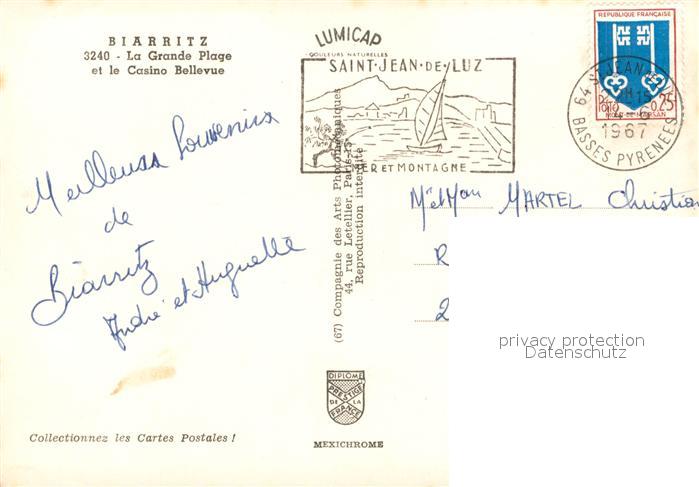 BIARRITZ
3240 - La Grande Plage
et le Casino Bellevue
Meilleurs Souvenirs
de
Biarritz
André et Huguette
Collectionnez les Cartes Postales !
LUMICAP
COULEURS NATURELLES
SAINT·JEAN·DE·LUZ
MER ET MONTAGNE
(67) Compagnie des Arts Photomécaniques
44, rue Letellier, Paris-15
Reproduction interdite
DIPLOME
PRESTIGE
DE LA
FRANCE
MEXICHROME
REPUBLIQUE FRANÇAISE
0,25
MONT-DE-MARSAN
64 ST JEAN
1967
BASSES PYRENEES
MARTEL Christian
R
2
privacy protection
Datenschutz